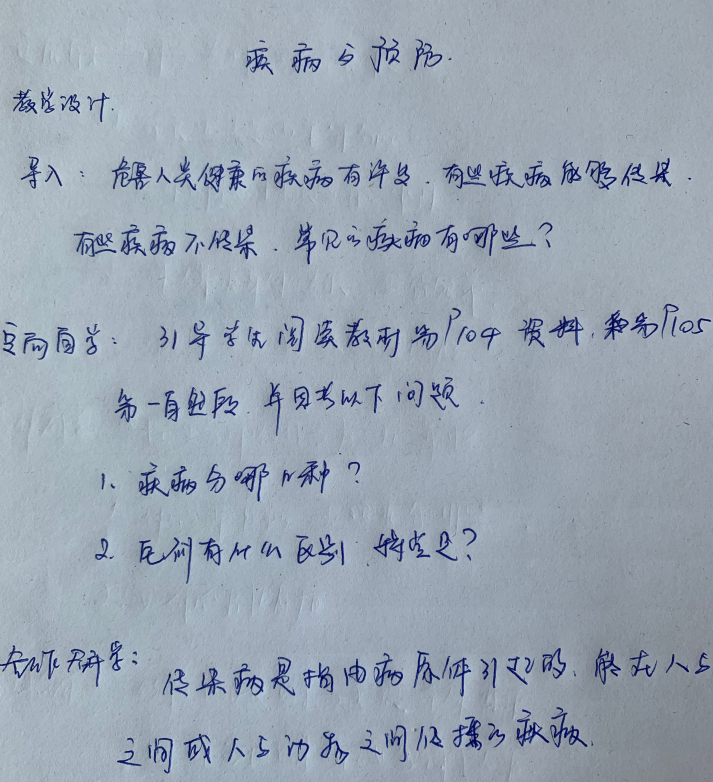 疾病与预防.
教学设计.
导入：危害人类健康的疾病有许多.有些疾病能够传染.
有些疾病不传染.常见的疾病有哪些？
自学：引导学生阅读教材第P104资料,和第P105
第一自然段.并思考以下问题.
1、疾病分哪几种？
2.它们有什么区别、特点是？
合作研学：传染病是指由病原体引起的、能在人与
之间或人与动物之间传播的疾病.